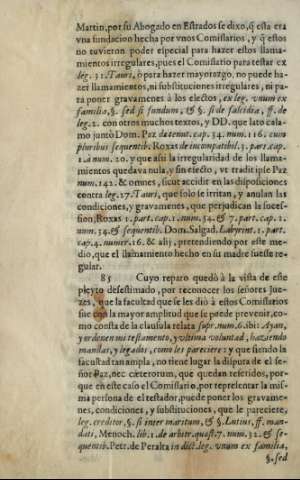 Martin, por su Abogado en Estrados se dixo, q̃ esta era
vna fundacion hecha por vnos Comissarios, y q̃ estos
no tuvieron poder especial para hazer estos llama-
mientos irregulares, pues el Comissario para testar ex
leg. 31. Tauri, ò para hazer mayorazgo, no puede ha-
zer llamamientos, ni substituciones irregulares, ni pa-
ra poner gravamenes à los electos, ex leg. vnum ex
familia, §. sed si fundum, & §. si de falcidia, ff. de
leg. 2. con otros muchos textos, y DD. que lato cala-
mo juntò Dom. Paz de tenut. cap. 34. num. 116. cum
pluribus sequentib. Roxas de incompatibil. 3. part. cap.
1. à num. 20. y que assi la irregularidad de los llama-
mientos quedava nula, y sin efecto, vt tradit ipse Paz
num. 142. & omnes, sicut accidit en las disposiciones
contra leg. 27. Tauri, que solo se irritan, y anulan las
condiciones, y gravamenes, que perjudican la sucess-
sion, Roxas 1. part. cap. 1. num. 54. & 7. part. cap. 2.
num. 34. & sequentib. Dom. Salgad. Labyrint. 1. part.
cap. 4. numer. 16. & alij, pretendiendo por este me-
dio, que el llamamiento hecho en su madre fuesse re-
gular.
85 Cuyo reparo quedò à la vista de este
pleyto desestimado, por reconocer los señores Jue-
zes, que la facultad que se les diò à estos Comissarios
fue con la mayor amplitud que se puede prevenir, co-
mo consta de la clausula relata supr. num. 6. ibi: Ayan,
y ordenen mi testamento, y vltima voluntad, haziendo
mandas, y legados, como les pareciere: y que siendo la
facultad tan ampla, no tiene lugar la disputa de el se-
ñor Paz, nec cæterorum, que quedan referidos, por-
que en este caso el Comissario, por representar la mis-
ma persona de el testador, puede poner los gravame-
nes, condiciones, y substituciones, que le pareciere,
leg. creditor, §. si inter maritum, & §. Lutius, ff. man-
dati, Menoch. lib. 1. de arbitr. quæst. 7. num. 32. & se-
quentib. Petr. de Peralta in dict. leg. vnum ex familia,
§. sed